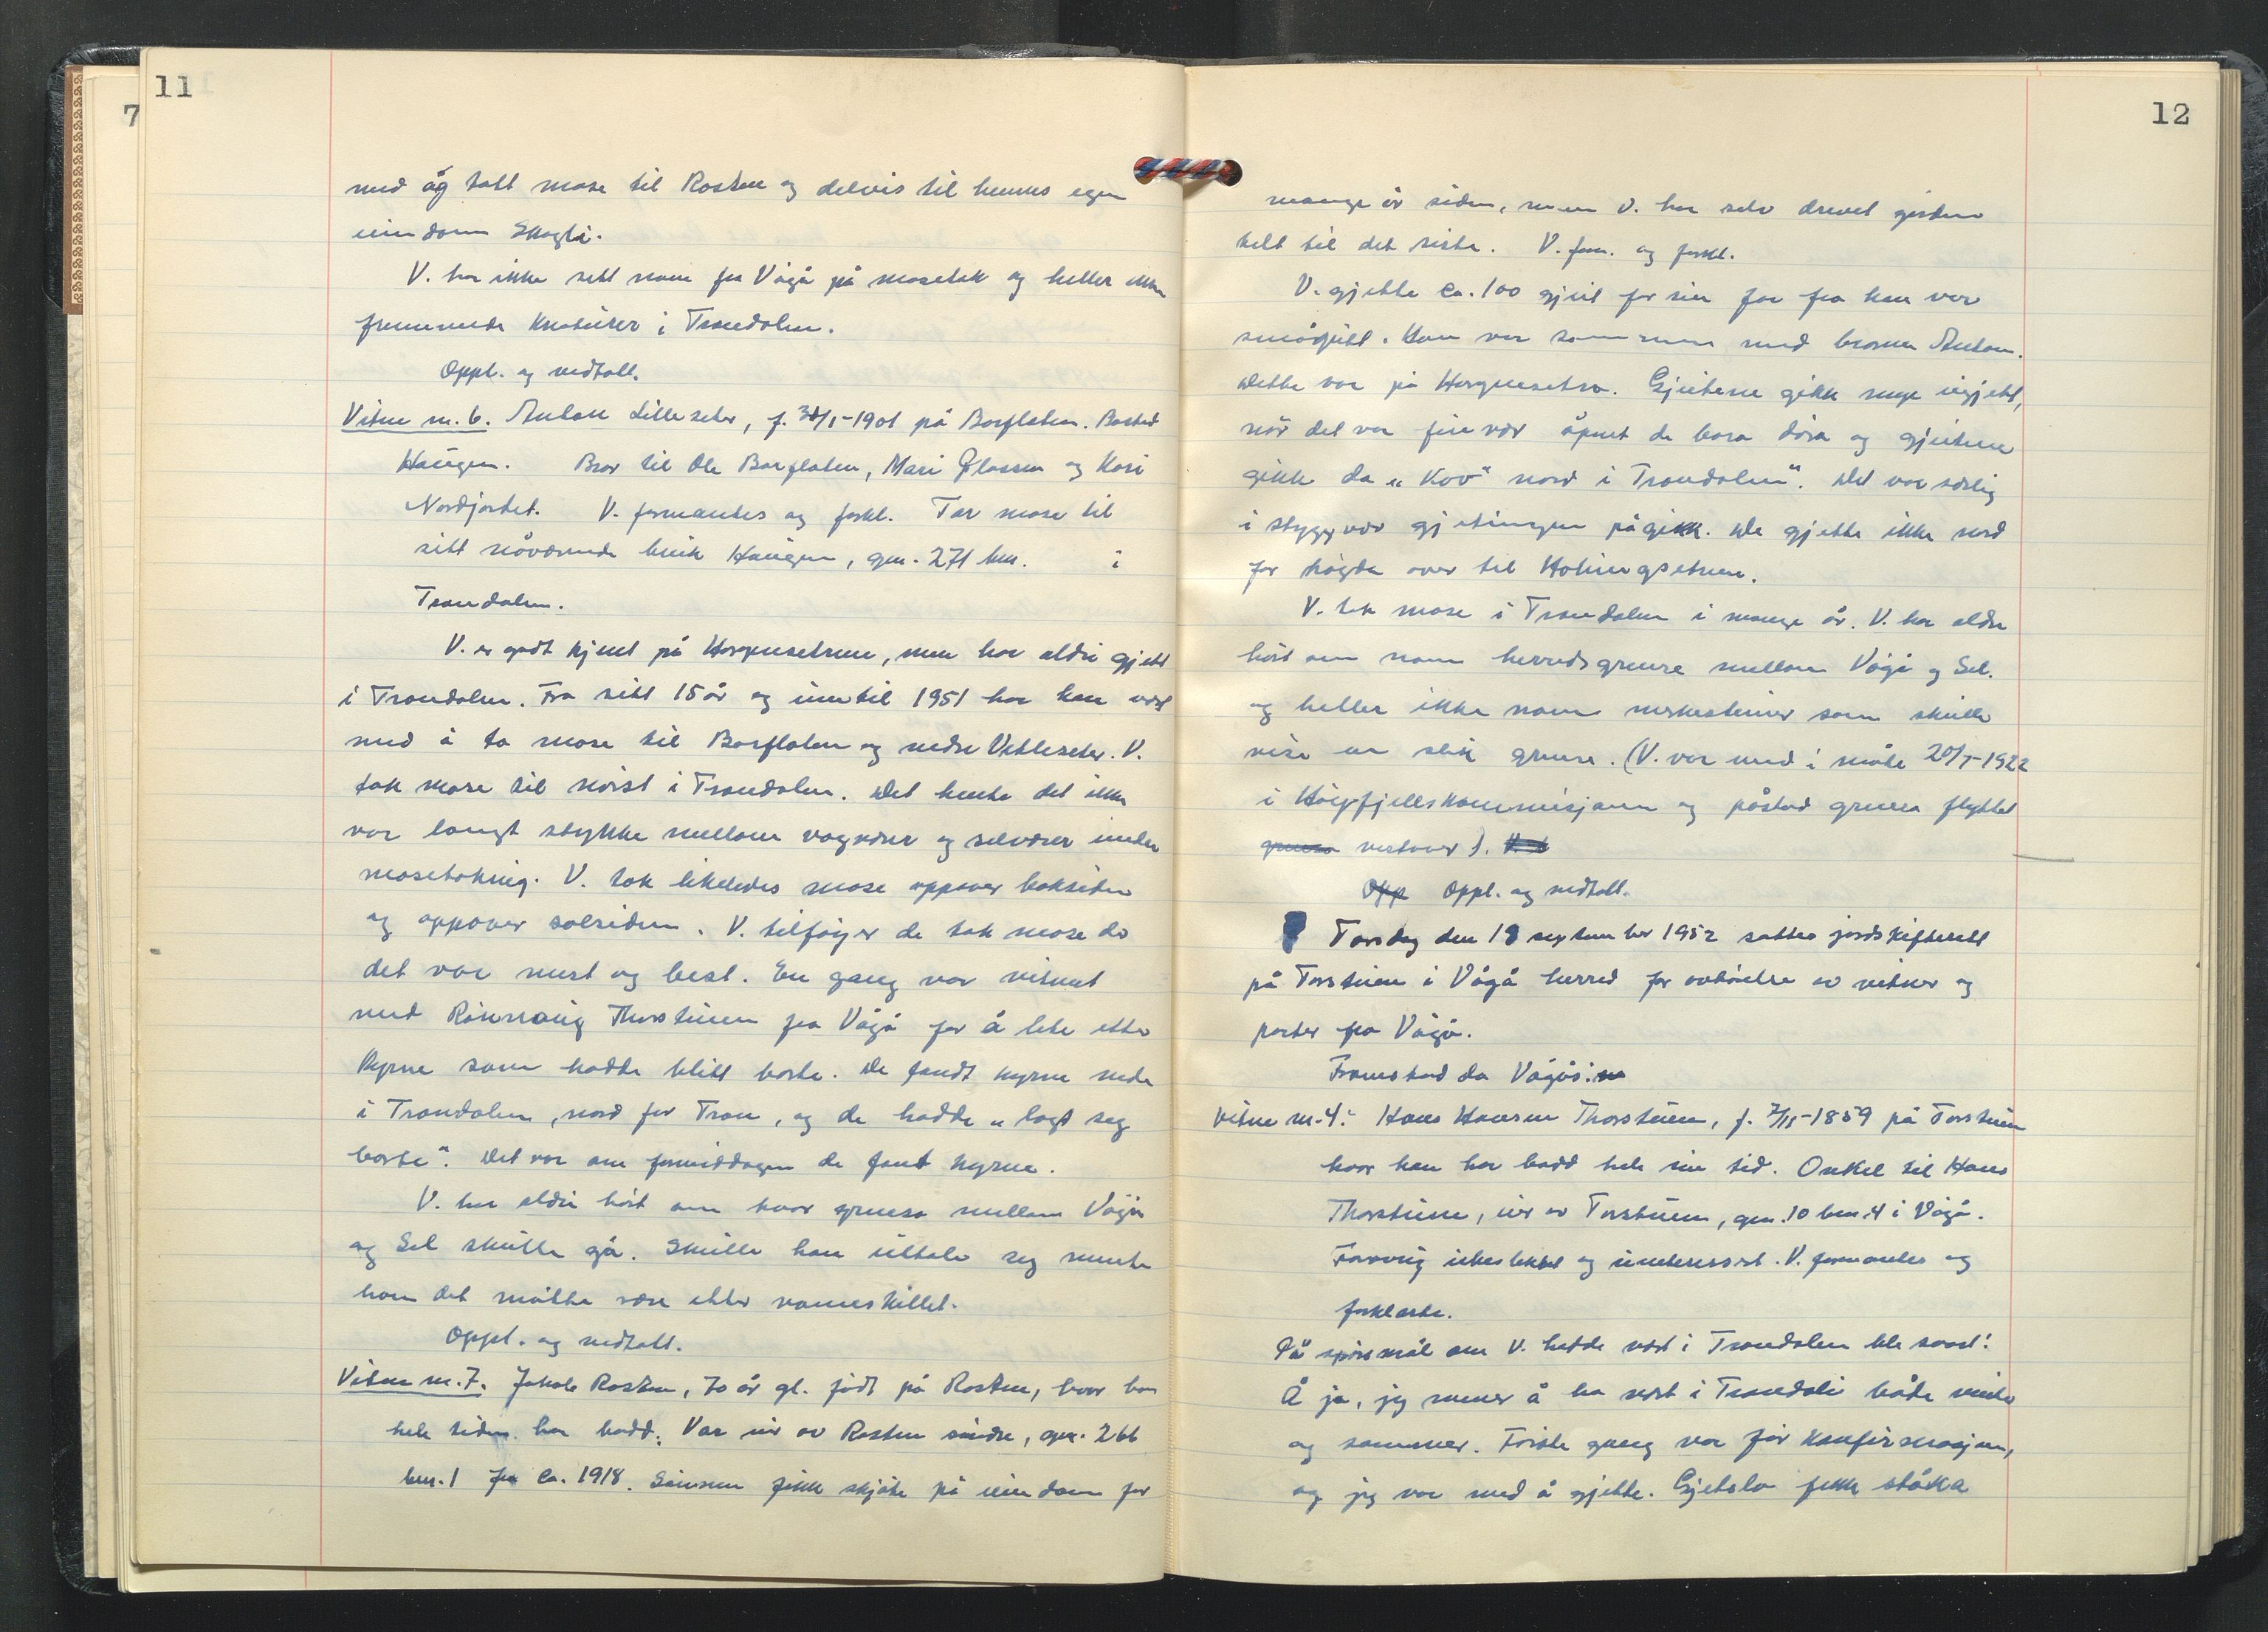 11
7
med óg tatt mose til Rosten og delvis til hennes egen
eiendom Skogli.
V. har ikke sett noen fra Vågå på mosetak og heller ikke
fremmende kreturer i Trondalen.
Oppl. og vedtatt.
Vitne nr. 6. Anton Lilleseter, f. 30/1-1901 på Borflaten. Bosted
Haugen. Bror til Ole Borflaten, Mari Glassen og Kari
Nordjordet. V. formantes og forkl. Tar mose til
sitt nåværende bruk Haugen, gnr. 271 bnr. i
Trondalen.
V. er godt kjent på Horgensetrene, men har aldri gjett
i Trondalen. Fra sitt 15 år og inntil 1951 har han vært
med å ta mose til Borflaten og nedre Vetleseter. V.
tok mose til norst i Trondalen. Det hente det ikke
var langt stykke mellom vagværer og selværer under
mosetaking. V. tok likeledes mose oppover baksiden
og oppover solsiden. V. tilføyer de tok mose der
det var mest og best. En gang var vitnet
med Rønnaug Thorsteinen fra Vågå for å lete etter
kyrne som hadde blitt borte. De fandt kyrne nede
i Trondalen, nord for Tron, og de hadde „lagt seg
borte". Det var om formiddagen de fant kyrne.
V. har aldri hørt om hvor grensa mellom Vågå
og Sel skulle gå. Skulle han uttale seg mente
han det måtte være etter vannskillet.
Oppl. og vedtatt.
Vitne nr. 7. Jakob Rosten, 70 år gl. født på Rosten, hvor han
hele tiden har bodd. Var eier av Rosten søndre, gnr. 266
bnr. 1 fra ca. 1918. Sønnen fikk skjøte på eiendom for
12
mange år siden, men V. har selv drevet gården
helt til det siste. V. form. og forkl.
V. gjette ca. 100 gjeit for sin far fra han var
smågutt. Han var sammen med broren Anton.
Dette var på Horgensetra. Gjeitene gikk mye ugjett,
når det var fint vær åpnet de bare døra og gjeitene
gikk da „Kov" nord i Trondalen". Det var særlig
i styggvær gjetingen pågikk. De gjette ikke nord
for høgda over til Holungsetrene.
V. tok mose i Trondalen i mange år. V. har aldri
hørt om noen herredsgrense mellom Vågå og Sel.
og heller ikke noen merkesteiner som skulle
vise en slik grense. (V. var med i møte 20/7-1922
i Høyfjellskommisjonen og påstod grensa flyttet
grensa vestover). V. t
Opp Oppl. og vedtatt.
Torsdag den 18 september 1952 sattes jordskifterett
på Torsteien i Vågå herred for avhørelse av vitner og
parter fra Vågå.
Framstod da Vågås:
Vitne nr. 4: Hans Hansen Thorsteien, f. 7/11-1859 på Torsteien
hvor han har bodd hele sin tid. Onkel til Hans
Thorsteien, eier av Torsteien, gnr. 10 bnr. 4 i Vågå.
Forøvrig ubeslektet og uinteressert. V. formantes og
forklarte.
På spørsmål om V. hadde vært i Trondalen ble svart:
Å ja, jeg mener å ha vært i Trondali både vinter
og sommer. Første gang var før konfirmasjonen,
og jeg var med å gjette. Gjetsla fikk ståka